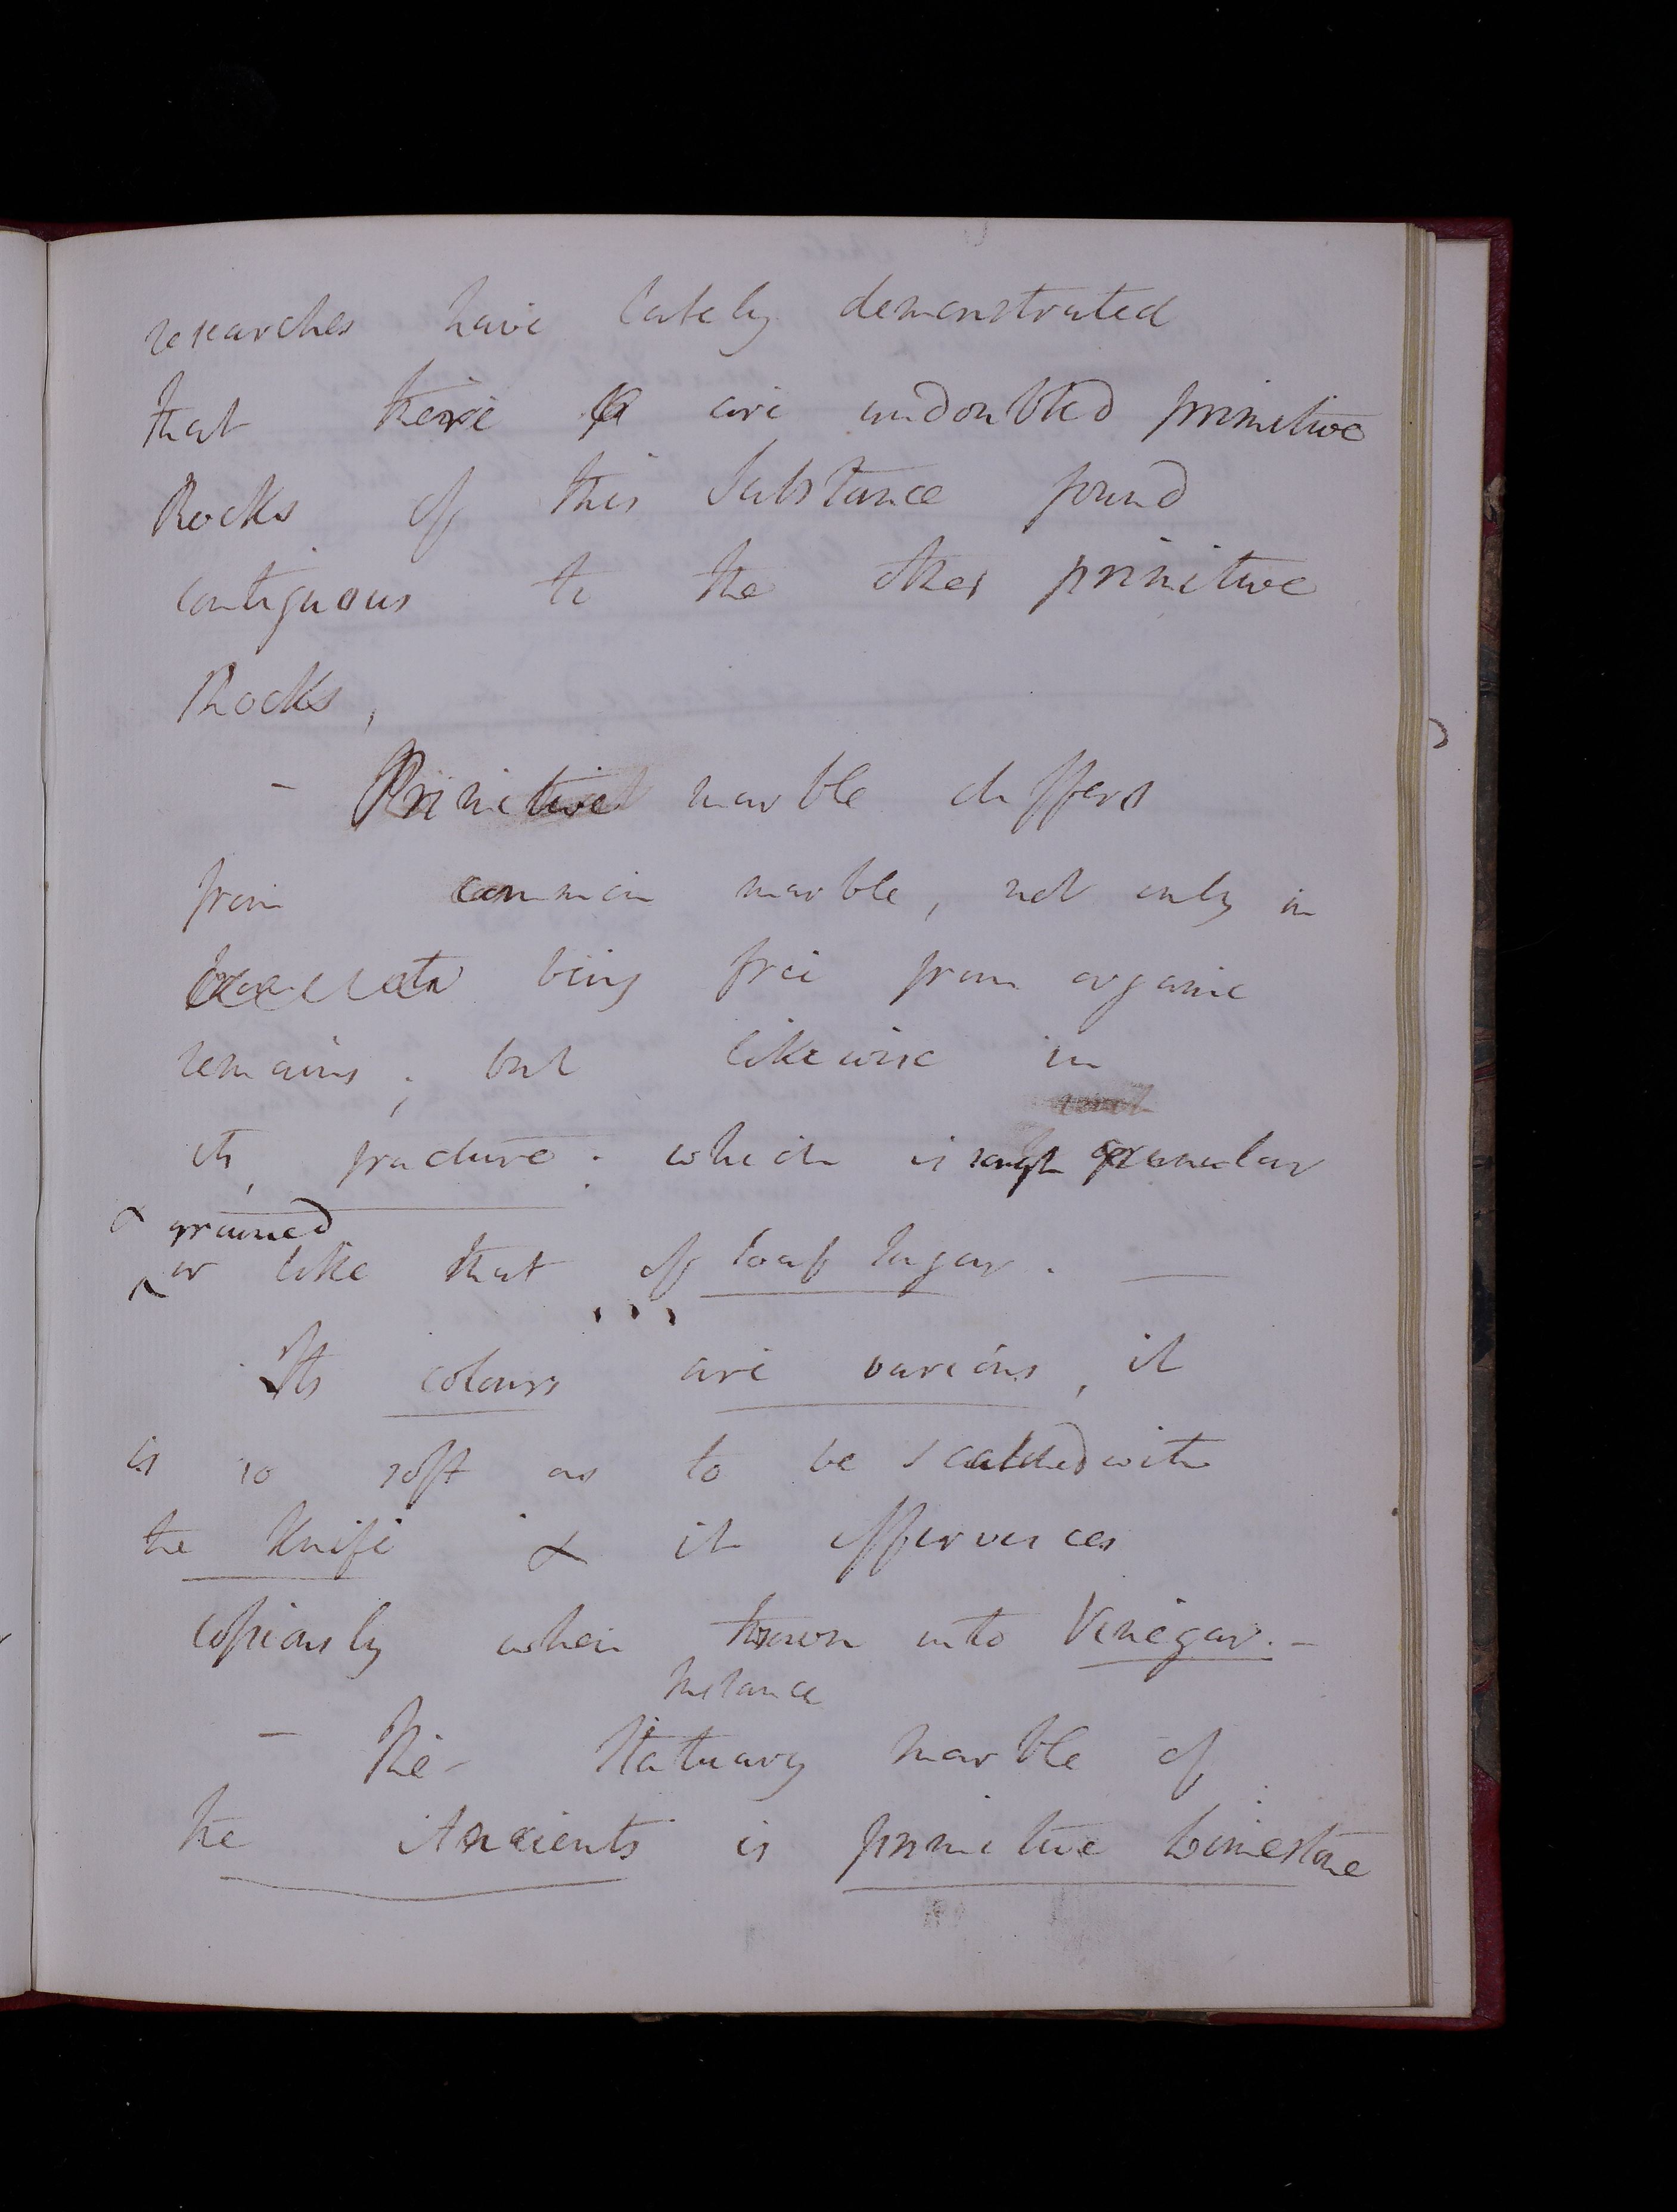 researches have lately demonstrated
that there are undoubted primitive
Rocks of this Substance found
contiguous to the other primitive
Rocks,
- Primitive marble differs
from common marble, not only in
being free from organic
remains; but likewise in
its fracture. which is rough granular
& grained
or like that of loaf sugar. —
Its colours are various, it
is so soft as to be scratched with
the Knife & it effervesces
copiously when thrown into Vinegar. -
Instance
- The - Statuary marble of
the Ancients is primitive Limestone